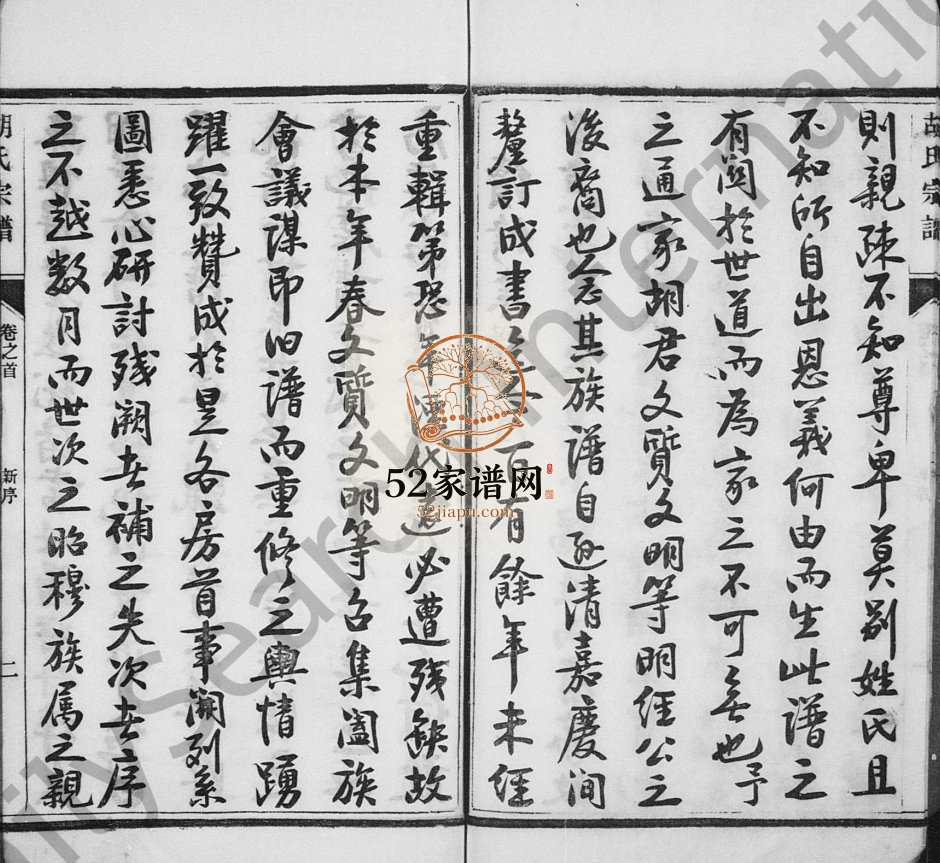 胡氏宗譜
則親疎不知尊卑莫别姓氏且
不知所自出恩義何由而生此譜之
有関於世道而為家之不可無也予
之通家胡君文質文明等明經公之
後裔也念其族譜自遜清嘉慶间
釐訂成書至今百有餘年未經
重輯第恐年湮代遠必遭残缺故
於本年春文質文明等召集闔族
會議謀即旧譜而重修之輿情踴
躍一致贊成於是各房首事開列系
圖悉心研討残闕者補之失次者序
之不越数月而世次之昭穆族属之親
胡氏宗譜
卷之首
新序
二
52家谱网
52jiapu.com
Family Search International